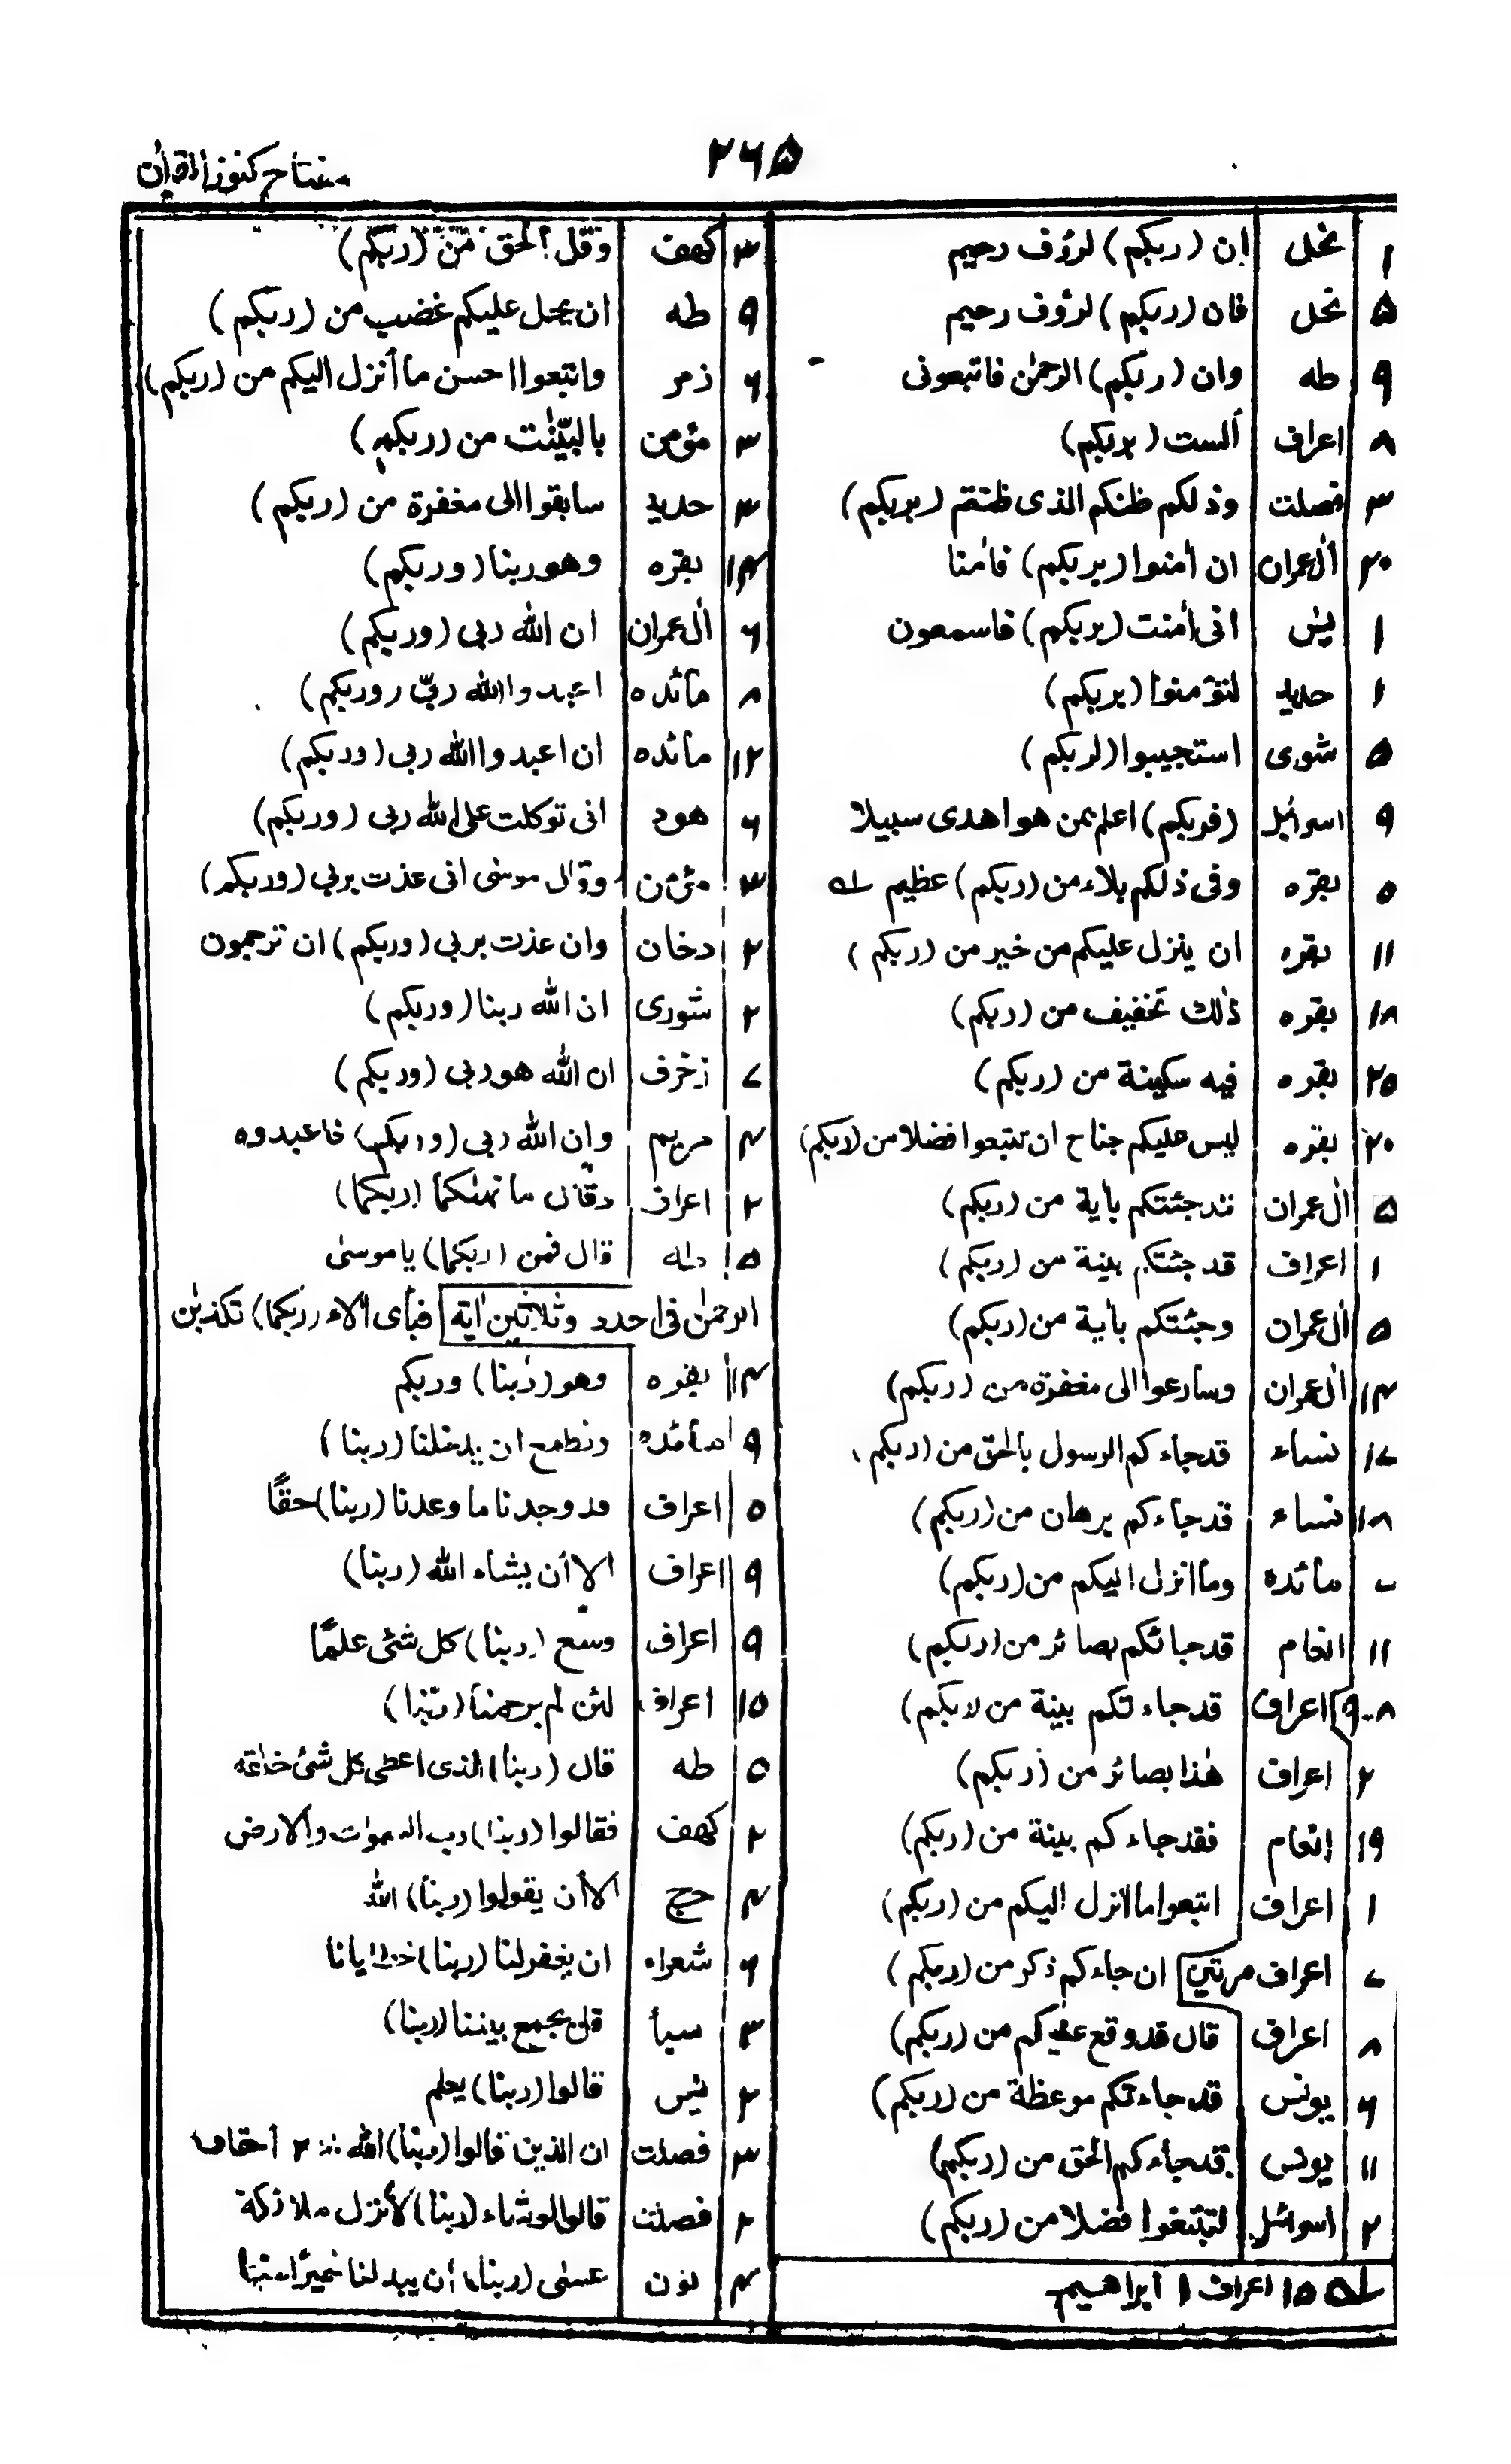 مفتاح كنوز القرآن
۲۶۵
۱ نحل ان (ربكم) لرؤف رحيم
۵ نحل فان (ربكم) لرؤف رحيم
۹ طه وان (ربكم) الرحمٰن فاتبعونى
۸ اعراف ألست (بربكم)
۳ فصلت وذلكم ظنكم الذى ظننتم (بربكم)
۲۰ اٰل عمران ان اٰمنوا (بربكم) فاٰمنا
۱ يٰس انى اٰمنت (بربكم) فاسمعون
۱ حديد لتؤمنوا (بربكم)
۵ شورى استجيبوا (لربكم)
۹ اسرائيل (فربكم) اعلم بمن هو اهدى سبيلا
۵ بقره وفى ذلكم بلاء من (ربكم) عظيم ـله
۱۱ بقره ان ينزل عليكم من خير من (ربكم)
۱۸ بقره ذٰلك تخفيف من (ربكم)
۲۵ بقره فيه سكينة من (ربكم)
۲۰ بقره ليس عليكم جناح ان تبتغوا فضلا من (ربكم)
۵ اٰل عمران قد جئتكم باية من (ربكم)
۱ اعراف قد جئتكم ببينة من (ربكم)
۵ اٰل عمران وجئتكم باية من (ربكم)
۱۴ اٰل عمران وسارعوا الى مغفرة من (ربكم)
۱۷ نساء قد جاءكم الرسول بالحق من (ربكم)
۱۸ نساء قد جاءكم برهان من (ربكم)
مائده وما انزل اليكم من (ربكم)
۱۱ انعام قد جائكم بصائر من (ربكم)
۸-۹ اعراف قد جاءتكم بينة من (ربكم)
۲ اعراف هٰذا بصائر من (ربكم)
۱۹ انعام فقد جاءكم بينة من (ربكم)
۱ اعراف اتبعوا ما انزل اليكم من (ربكم)
۷ اعراف مرتين ان جاءكم ذكر من (ربكم)
۸ اعراف قال قد وقع عليكم من (ربكم)
۶ يونس قد جاءتكم موعظة من (ربكم)
۱۱ يونس قد جاءكم الحق من (ربكم)
۲ اسرائيل لتبتغوا فضلا من (ربكم)
ـله ۱۵ اعراف ۱ ابراهيم
۴ كهف وقل الحق من (ربكم)
۹ طه ان يحل عليكم غضب من (ربكم)
۶ زمر واتبعوا احسن ما أنزل اليكم من (ربكم)
۴ مؤمن بالبيّنٰت من (ربكم)
۴ حديد سابقوا الى مغفرة من (ربكم)
۱۴ بقره وهو ربنا (وربكم)
۶ اٰل عمران ان الله ربى (وربكم)
۸ مائده اعبدوا الله ربّى (وربكم)
۱۲ مائده ان اعبدوا الله ربى (وربكم)
۶ هود انى توكلت على الله ربى (وربكم)
۴ مؤمن وقال موسٰى انى عذت بربى (وربكم)
۲ دخان وان عذت بربى (وربكم) ان ترجمون
۲ شورى ان الله ربنا (وربكم)
۷ زخرف ان الله هو ربى (وربكم)
۴ مريم وان الله ربى (وربكم) فاعبدوه
۲ اعراف وقال ما نهٰكما (ربكما)
۵ طه قال فمن (ربكما) ياموسىٰ
الرحمٰن فى احدد وثلاثين اٰية فبأى اٰلاء (ربكما) تكذبٰن
۱۴ بقره وهو (ربنا) وربكم
۹ مائده ونطمع ان يدخلنا (ربنا)
۵ اعراف قد وجدنا ما وعدنا (ربنا) حقًّا
۹ اعراف الا أن يشاء الله (ربنا)
۹ اعراف وسع (ربنا) كل شئى علمًا
۱۵ اعراف لئن لم يرحمنا (ربنا)
۵ طه قال (ربنا) الذى اعطٰى كل شئ خلقه
۲ كهف فقالوا (ربنا) رب السموات والارض
۴ حج الا أن يقولوا (ربنا) الله
۶ شعراء ان يغفر لنا (ربنا) خطايانا
۳ سبأ قل يجمع بيننا (ربنا)
۲ يٰس قالوا (ربنا) يعلم
۴ فصلت ان الذين قالوا (ربنا) الله ۲ احقاف
۲ فصلت قالوا لو شاء (ربنا) لأنزل ملائكة
۴ نون عسٰى (ربنا) أن يبدلنا خيرًا منها